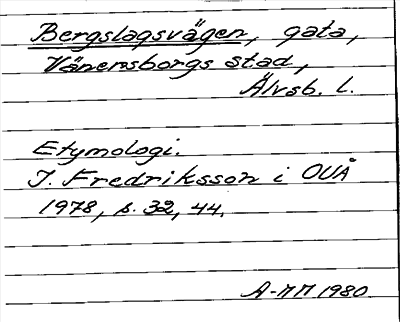 Bergslagsvägen, gata,
Vänersborgs stad,
Älvsb. l.
Etymologi.
I. Fredriksson i OUÅ
1978, s. 32, 44.
A-NN 1980